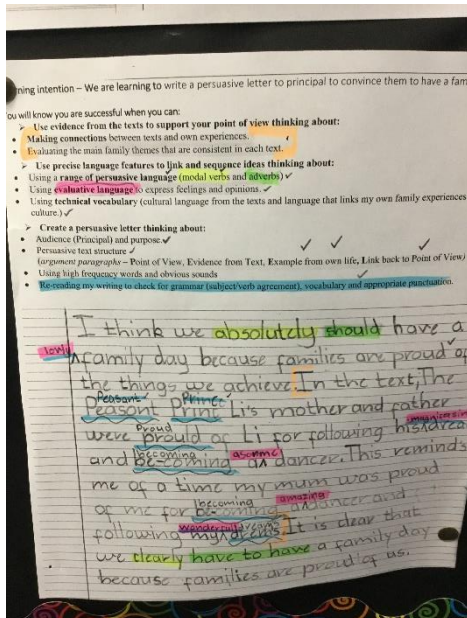 ning intention – We are learning to write a persuasive letter to principal to convince them to have a fam
ou will know you are successful when you can:
➢ Use evidence from the texts to support your point of view thinking about:
• Making connections between texts and own experiences.
• Evaluating the main family themes that are consistent in each text.
➢ Use precise language features to link and sequence ideas thinking about:
• Using a range of persuasive language (modal verbs and adverbs) ✓
• Using evaluative language to express feelings and opinions. ✓
• Using technical vocabulary (cultural language from the texts and language that links my own family experiences
culture.) ✓
➢ Create a persuasive letter thinking about:
• Audience (Principal) and purpose. ✓
• Persuasive text structure ✓
(argument paragraphs – Point of View, Evidence from Text, Example from own life, Link back to Point of View)
• Using high frequency words and obvious sounds
• Re-reading my writing to check for grammar (subject/verb agreement), vocabulary and appropriate punctuation.
I think we absolutely should have a
family day because families are proud of
the things we achieve. In the text, The
Peasant Prince
Peasont Print Li's mother and father
Proud
were prould of Li for following his drea
becoming
and be-coming a dancer. This reminds
me of a time my mum was proud
becoming amazing
of me for be-coming a dancer and
following my
It is clear that
we clearly have to have a family day
because families are proud of us.